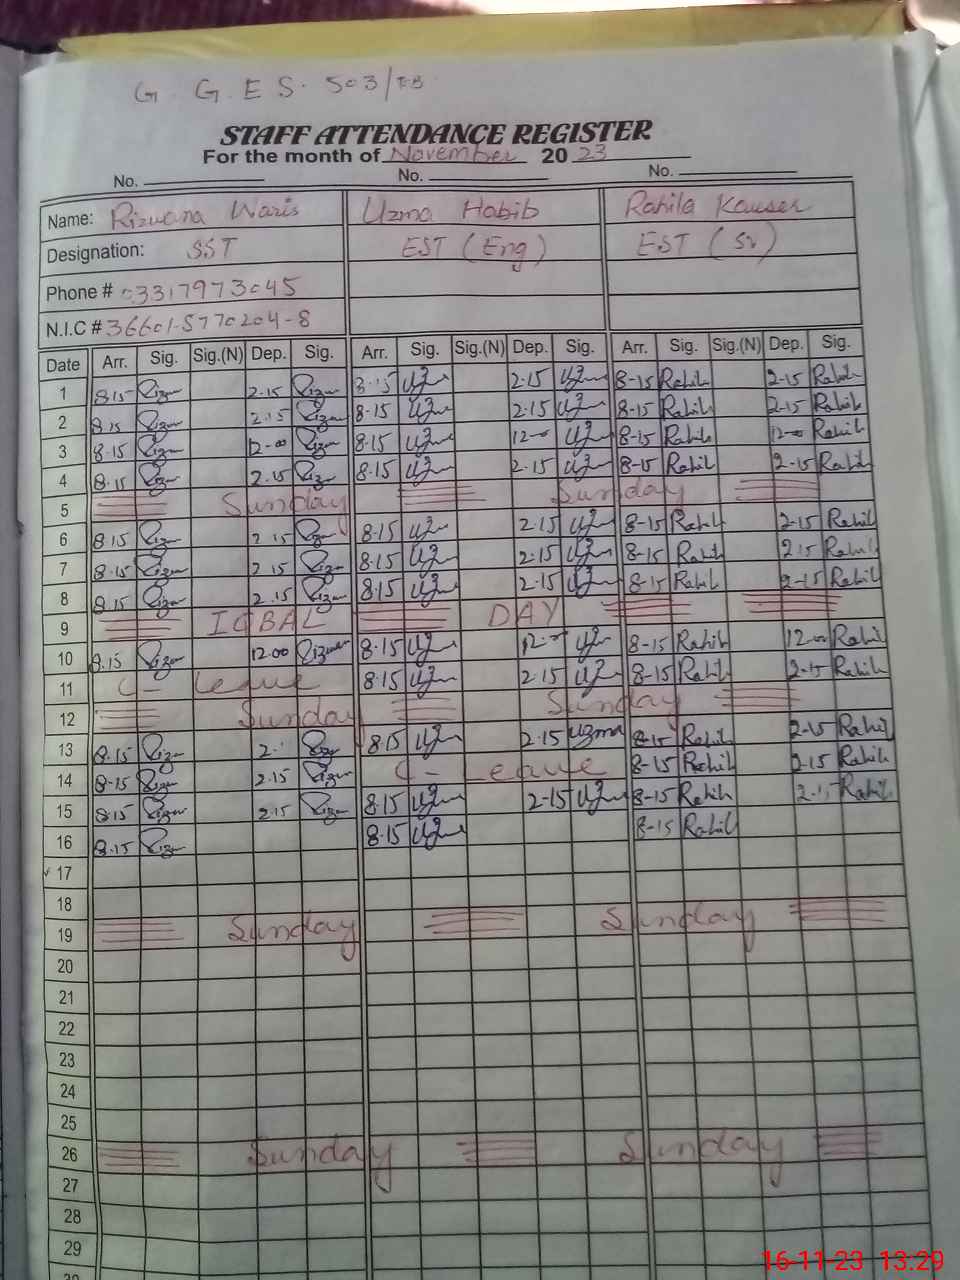 G. G. E S. 503/EB
STAFF ATTENDANCE REGISTER
For the month of November 2023
No. No. No.
Name: Rizwana Waris Uzma Habib Rahila Kauser
Designation: SST EST (Eng) EST (Sr)
Phone # 03317973045
N.I.C # 36601-5770204-8
Date Arr. Sig. Sig.(N) Dep. Sig. Arr. Sig. Sig.(N) Dep. Sig. Arr. Sig. Sig.(N) Dep. Sig.
1 8.15 Rizw 2.15 Rizw 8.15 Uzm 2.15 Uzm 8-15 Rahil 2-15 Rahil
2 8.15 Rizw 2.15 Rizw 8.15 Uzm 2.15 Uzm 8-15 Rahil 2-15 Rahil
3 8.15 Rizw 12-00 Rizw 8.15 Uzm 12-00 Uzm 8-15 Rahil 12-00 Rahil
4 8.15 Rizw 2.15 Rizw 8.15 Uzm 2.15 Uzm 8-15 Rahil 2-15 Rahil
5 Sunday Sunday
6 8.15 Rizw 2.15 Rizw 8.15 Uzm 2.15 Uzm 8-15 Rahil 2-15 Rahil
7 8.15 Rizw 2.15 Rizw 8.15 Uzm 2.15 Uzm 8-15 Rahil 2.15 Rahil
8 8.15 Rizw 2.15 Rizw 8.15 Uzm 2.15 Uzm 8-15 Rahil 2-15 Rahil
9 IQBAL DAY
10 8.15 Rizw 12.00 Rizw 8.15 Uzm 12-00 Uzm 8-15 Rahil 12-00 Rahil
11 C- Leave 8.15 Uzm 2.15 Uzm 8-15 Rahil 2-15 Rahil
12 Sunday Sunday
13 8.15 Rizw 2. Rizw 8.15 Uzm 2.15 Uzma 8-15 Rahil 2-15 Rahil
14 8.15 Rizw 2.15 Rizw C- Leave 8-15 Rahil 2-15 Rahil
15 8.15 Rizw 2.15 Rizw 8.15 Uzm 2-15 Uzm 8-15 Rahil 2-15 Rahil
16 8.15 Rizw 8.15 Uzm 8-15 Rahil
17
18
19 Sunday Sunday
20
21
22
23
24
25
26 Sunday Sunday
27
28
29
30
16-11-23 13:29